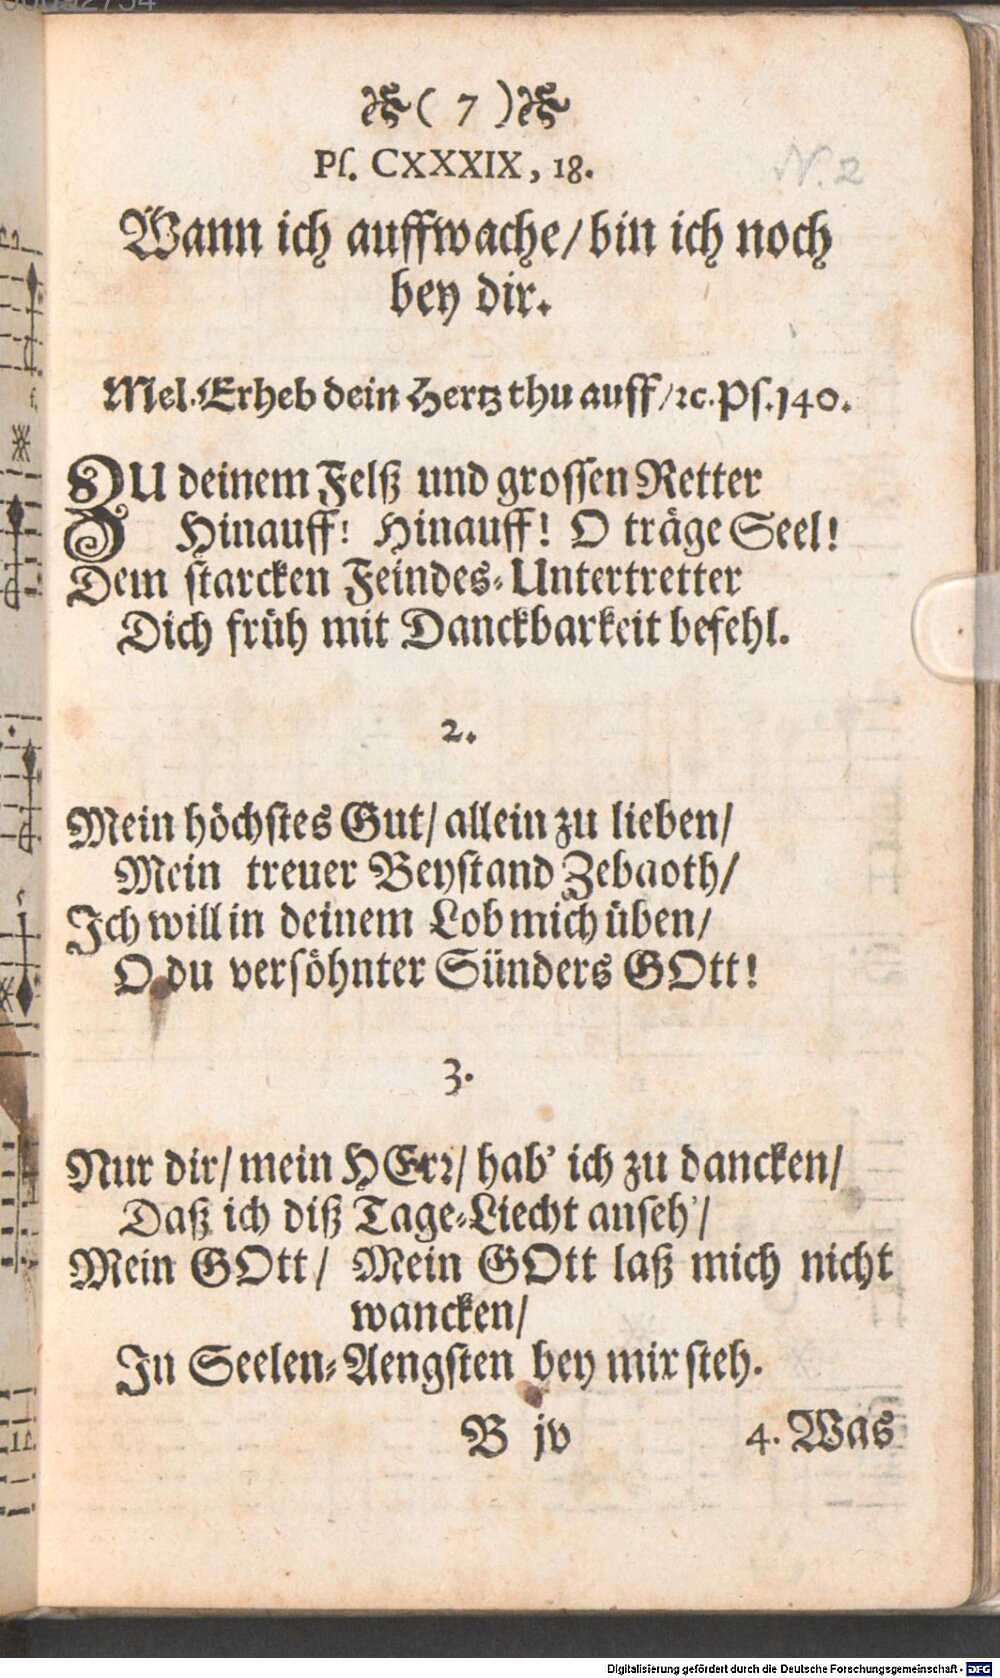 ( 7 )
Pſ. CXXXIX, 18.
N. 2
Wann ich auffwache/ bin ich noch
bey dir.
Mel. Erheb dein Hertz thu auff/ ꝛc. Pſ. 140.
ZU deinem Felß und groſſen Retter
Hinauff! Hinauff! O träge Seel!
Dem ſtarcken Feindes-Untertretter
Dich früh mit Danckbarkeit befehl.
2.
Mein höchſtes Gut/ allein zu lieben/
Mein treuer Beyſtand Zebaoth/
Ich will in deinem Lob mich üben/
O du verſöhnter Sünders GOtt!
3.
Nur dir/ mein HErꝛ/ hab' ich zu dancken/
Daß ich diß Tage-Liecht anſeh'/
Mein GOtt/ Mein GOtt laß mich nicht
wancken/
In Seelen-Aengſten bey mir ſteh.
B jv
4. Was
Digitalisierung gefördert durch die Deutsche Forschungsgemeinschaft - DFG